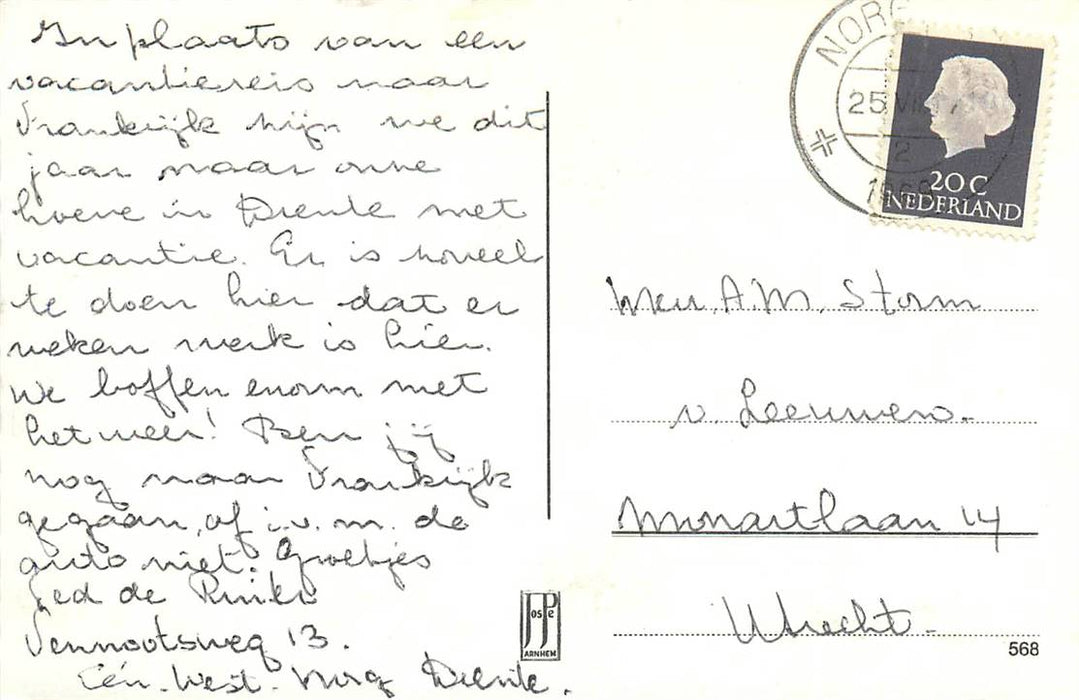 In plaats van een
vacantiereis naar
Frankrijk zijn we dit
jaar naar onze
hoeve in Drente met
vacantie. Er is zoveel
te doen hier dat er
weken werk is hier.
We boffen enorm met
het weer! Ben jij
nog naar Frankrijk
gegaan, of i.v.m. de
auto niet. Groetjes
de
13.
Eén-West. Norg Drente.
NORG
25 VII
2
20 C
NEDERLAND
A.M. Storm
v. Leeuwen-
Mozartlaan 14
Utrecht-
JosPe
ARNHEM
568